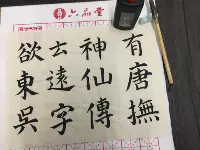 六品堂
有唐撫
神仙傳
云遠字
欲東吳